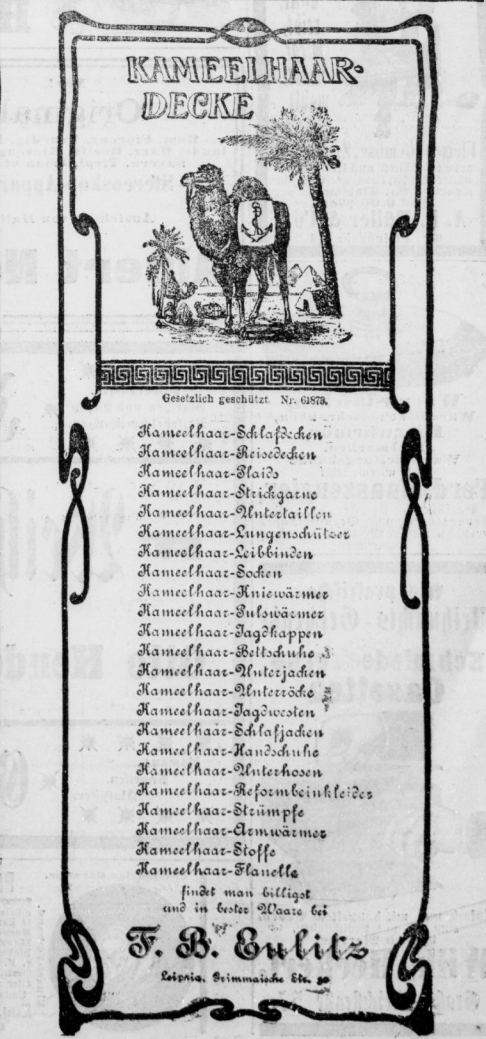 KAMEELHAAR-
DECKE
Gesetzlich geschützt Nr. 61873.
Kameelhaar-Schlafdecken
Kameelhaar-Reisedecken
Kameelhaar-Plaids
Kameelhaar-Strickgarne
Kameelhaar-Untertaillen
Kameelhaar-Lungenschützer
Kameelhaar-Leibbinden
Kameelhaar-Socken
Kameelhaar-Kniewärmer
Kameelhaar-Pulswärmer
Kameelhaar-Jagdkappen
Kameelhaar-Bettschuhe
Kameelhaar-Unterjacken
Kameelhaar-Unterröcke
Kameelhaar-Jagdwesten
Kameelhaar-Schlafjacken
Kameelhaar-Handschuhe
Kameelhaar-Unterhosen
Kameelhaar-Reformbeinkleider
Kameelhaar-Strümpfe
Kameelhaar-Armwärmer
Kameelhaar-Stoffe
Kameelhaar-Flanelle
findet man billigst
und in bester Waare bei
F. B. Eulitz
Leipzig, Grimmaische Str.